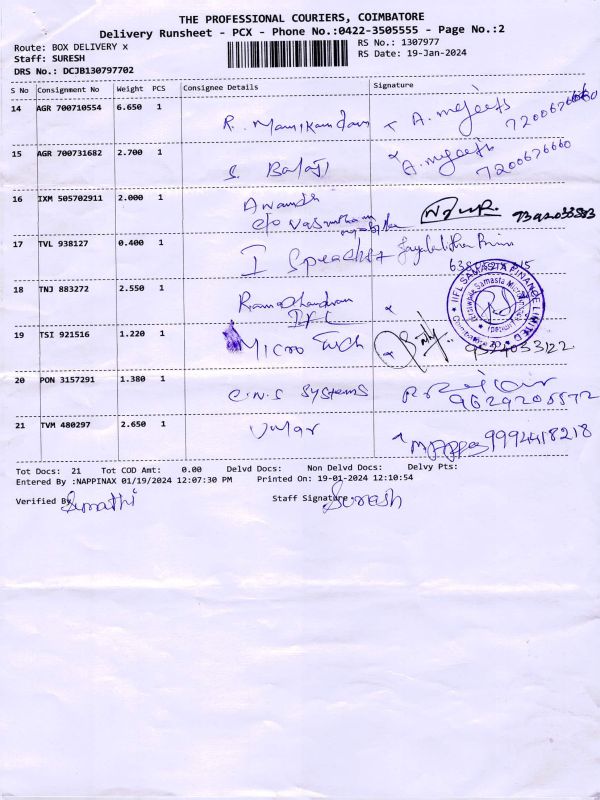 THE PROFESSIONAL COURIERS, COIMBATORE
Delivery Runsheet - PCX - Phone No.:0422-3505555 - Page No.:2
Route: BOX DELIVERY x
RS No.: 1307977
Staff: SURESH
RS Date: 19-Jan-2024
DRS No.: DCJB130797702
S No Consignment No Weight PCS Consignee Details Signature
14 AGR 700710554 6.650 1 R. Manikandan
15 AGR 700731682 2.700 1 S. Balaji 7200676660
16 IXM 505702911 2.000 1 Anandh
c/o
17 TVL 938127 0.400 1 I Speachs
18 TNJ 883272 2.550 1 Ramachandran
IIFL SAMASTA FINANCE LIMITED
19 TSI 921516 1.220 1 Micro Tech
20 PON 3157291 1.380 1 C.N.S Systems 9629205572
21 TVM 480297 2.650 1 Umar 9994418218
Tot Docs: 21 Tot COD Amt: 0.00 Delvd Docs: Non Delvd Docs: Delvy Pts:
Entered By :NAPPINAX 01/19/2024 12:07:30 PM Printed On: 19-01-2024 12:10:54
Verified By Sumathi Staff Signature Suresh